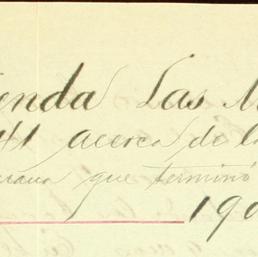 enda Las M
41 acerca de la
que terminó
190